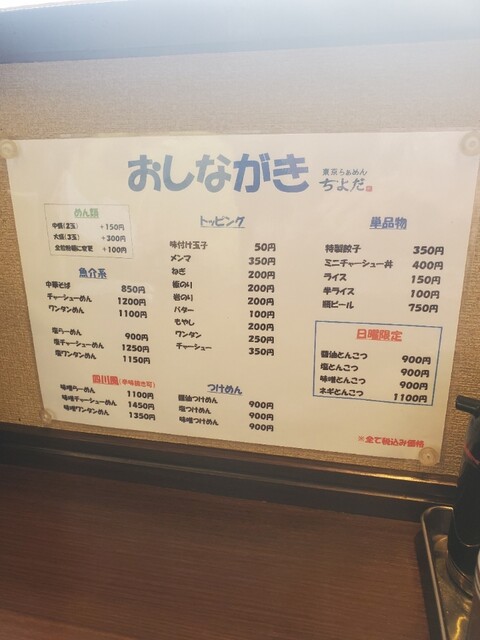 おしながき
東京らぁめん
ちよだ
めん類
中盛(2玉) +150円
大盛(3玉) +300円
全粒粉麺に変更 +100円
魚介系
中華そば 850円
チャーシューめん 1200円
ワンタンめん 1100円
塩らーめん 900円
塩チャーシューめん 1250円
塩ワンタンめん 1150円
(辛味抜き可)
味噌らーめん 1100円
味噌チャーシューめん 1450円
味噌ワンタンめん 1350円
トッピング
味付け玉子 50円
メンマ 350円
ねぎ 200円
板のり 200円
岩のり 200円
バター 100円
もやし 200円
ワンタン 250円
チャーシュー 350円
つけめん
醤油つけめん 900円
塩つけめん 900円
味噌つけめん 900円
単品物
特製餃子 350円
ミニチャーシュー丼 400円
ライス 150円
半ライス 100円
瓶ビール 750円
日曜限定
醤油とんこつ 900円
塩とんこつ 900円
味噌とんこつ 900円
ネギとんこつ 1100円
※全て税込み価格